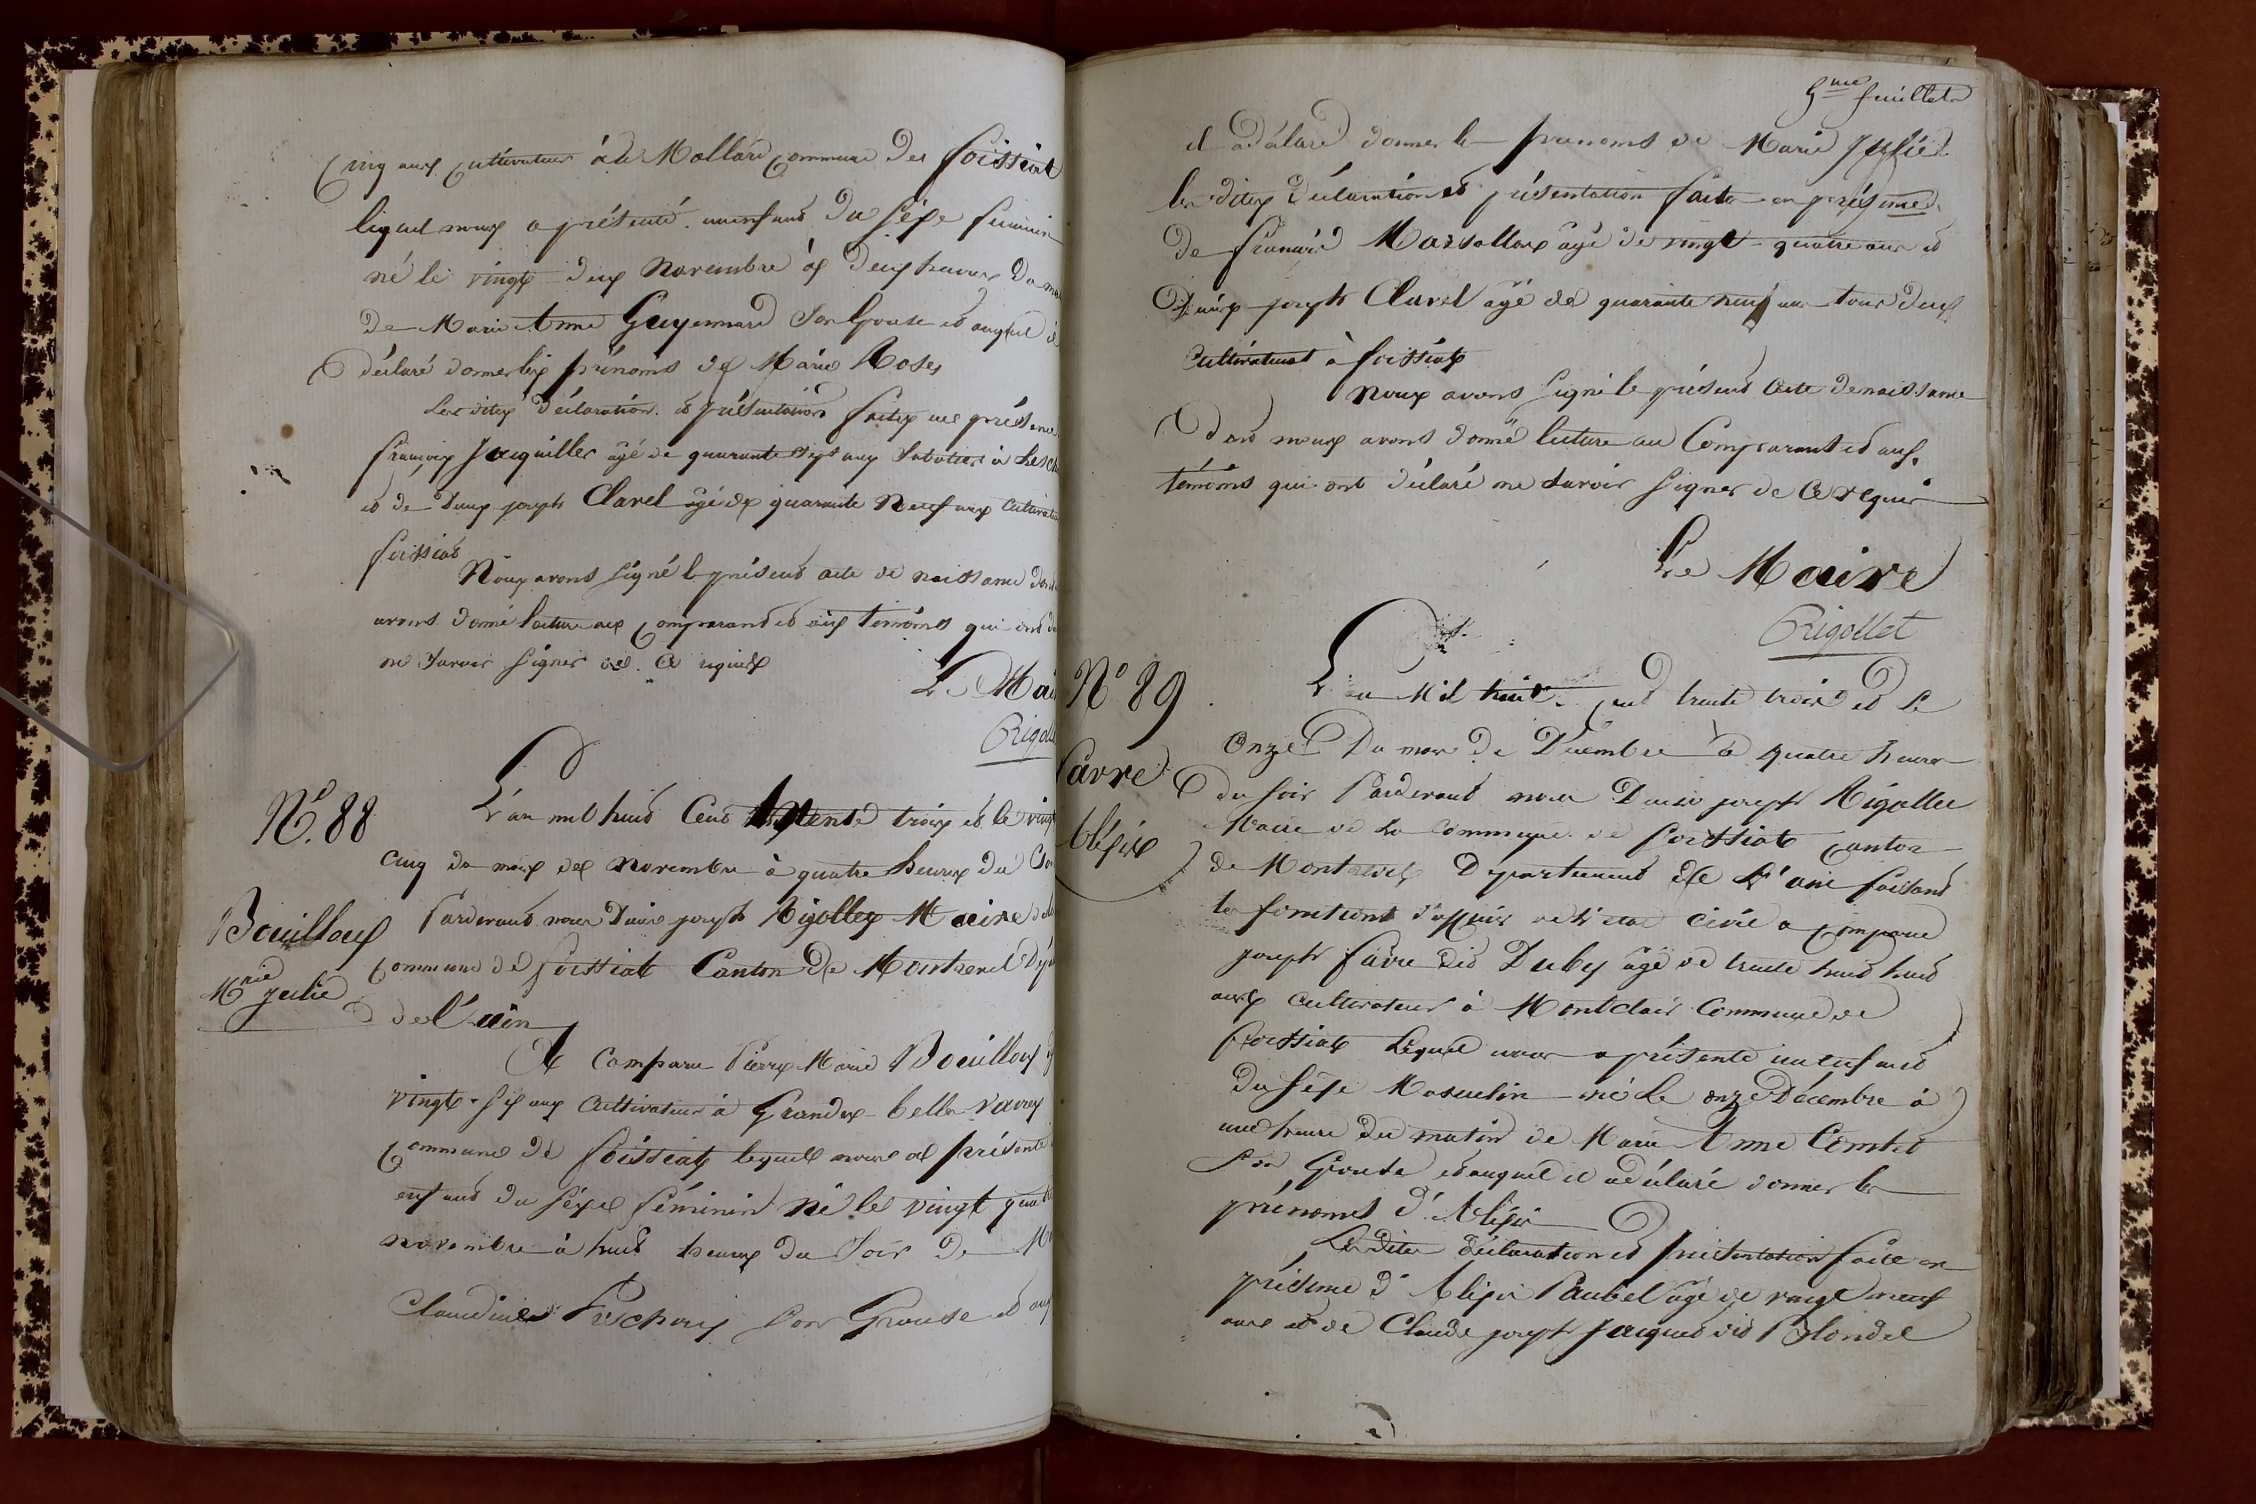 Cinq ans Cultivateur à de Mollard commune de foissiat
lequel nous a présenté un enfant du séxe féminin
né le vingt deux Novembre à deux heures du ma
de Marie Anne Guyennard son Epouse et auquel il
a déclaré donner les prénoms de Marie Rose
Les dites déclaration et présentation faites en présence
françois Jacquiller agé de quarante sept ans Sabotier à Lesch
et de Denis joseph Clavel agé de quarante Neuf ans Cultivate
foissiat
Nous avons signé le présent acte de naissance dont
avons donné lecture aux comparant et aux témoins qui ont dé
ne savoir signer de ce requis
Le Mai
Rigolle
N° 88
L'an mil huit Cent trente trois et le vingt
cinq du mois de novembre à quatre heures du soi
Bouilloux
Pardevant nous Denis joseph Rigollet Maire de la
Mrie julie
commune de foissiat Canton de Montrevel Dépa
de l'ain
A Comparu Pierre Marie Bouilloux
vingt-six ans Cultivateur à Grandes belles vavres
Commune de foissiat lequel nous a présenté
enfant du séxe féminin né le vingt quat
novembre à huit heures du soir de M
Claudine Pischoux son Epouse et auq
5me feuillet
il a déclaré donner les prenoms de Marie Julie
les dites déclaration et présentation faite en présence
de francois Marsolloux agé de vingt-quatre ans et
Denis joseph Clavel agé de quarante neuf ans tous deux
Cultivateurs à foissiat
Nous avons signé le présent acte de naissance
dont nous avons donné lecture au Comparant et aux
témoins qui ont déclaré ne savoir signer de ce requis
Le Maire
Rigollet
N° 89
L'an Mil huit cent trente trois et le
onze du mois de Décembre à quatre heures
favre
du soir Pardevant nous Denis joseph Rigollet
Aléxis
Maire de la commune de foissiat canton
de Montrevel Département de l'ain faisant
les fonctions d'officier de l'état civil a comparu
joseph favre dit Duby agé de trente huit huit
ans cultivateur à Montclair Commune de
foissiat Lequel nous a présenté un enfant
du séxe Masculin né le onze Décembre à
une heure du matin de Marie Anne Comtet
son Epouse et auquel il a déclaré donner les
prénoms d'Aléxis
Les dites déclaration et présentation faite en
présence d'Aléxis Paubel agé de vingt neuf
ans et de Claude joseph Jacquet dit Blondel